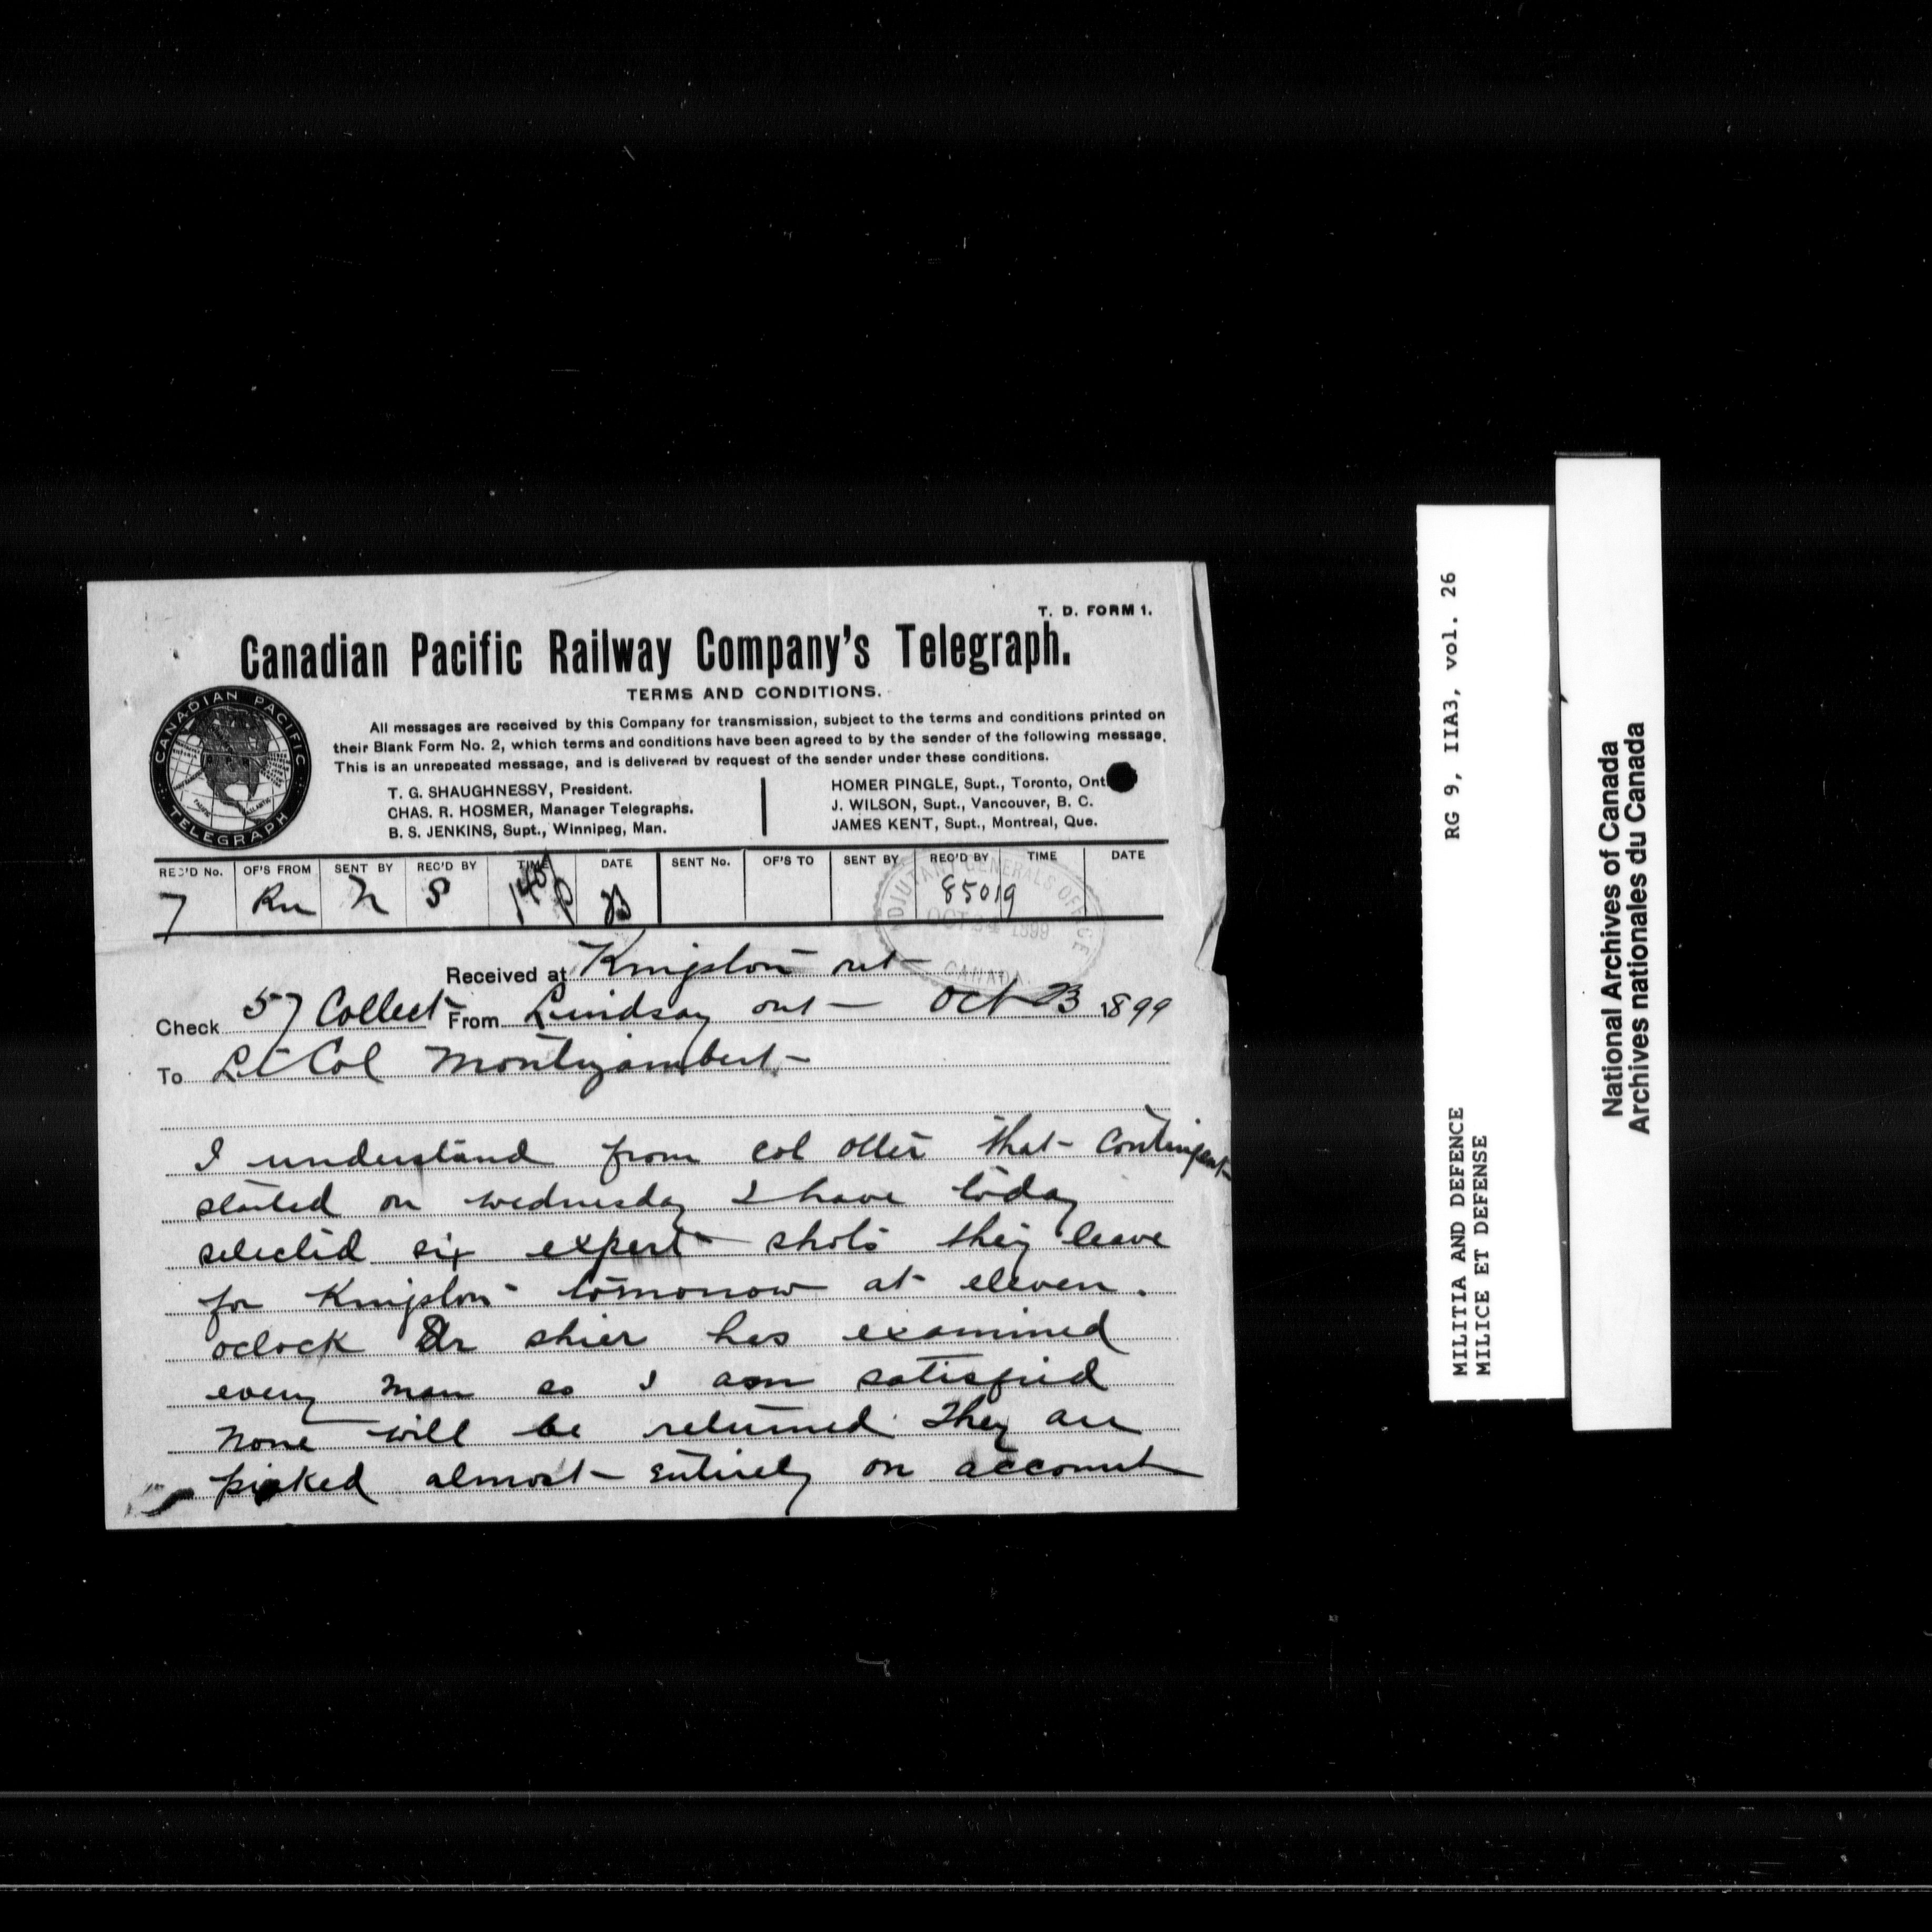 T. D. FORM 1.
Canadian Pacific Railway Company's Telegraph.
TERMS AND CONDITIONS.
All messages are received by this Company for transmission, subject to the terms and conditions printed on
their Blank Form No. 2, which terms and conditions have been agreed to by the sender of the following message.
This is an unrepeated message, and is delivered by request of the sender under these conditions.
T. G. SHAUGHNESSY, President.
CHAS. R. HOSMER, Manager Telegraphs.
B. S. JENKINS, Supt., Winnipeg, Man.
HOMER PINGLE, Supt., Toronto, Ont.
J. WILSON, Supt., Vancouver, B. C.
JAMES KENT, Supt., Montreal, Que.
CANADIAN PACIFIC
TELEGRAPH
REC'D No. OF'S FROM SENT BY REC'D BY TIME DATE SENT No. OF'S TO SENT BY REC'D BY TIME DATE
7 S 23 85019
ADJUTANT GENERALS OFFICE
OCT 24 1899
CANADA.
Received at Kingston ont
Check 57 Collect From Lindsay ont Oct 23 1899
To Lt Col Montizambert
I understand from col otter that contingent
started on wednesday I have today
selected six expert shots they leave
for Kingston tomorrow at eleven.
oclock Dr shier has examined
every man so I am satisfied
none will be returned They are
picked almost entirely on account
MILITIA AND DEFENCE RG 9, IIA3, vol. 26
MILICE ET DEFENSE
National Archives of Canada
Archives nationales du Canada